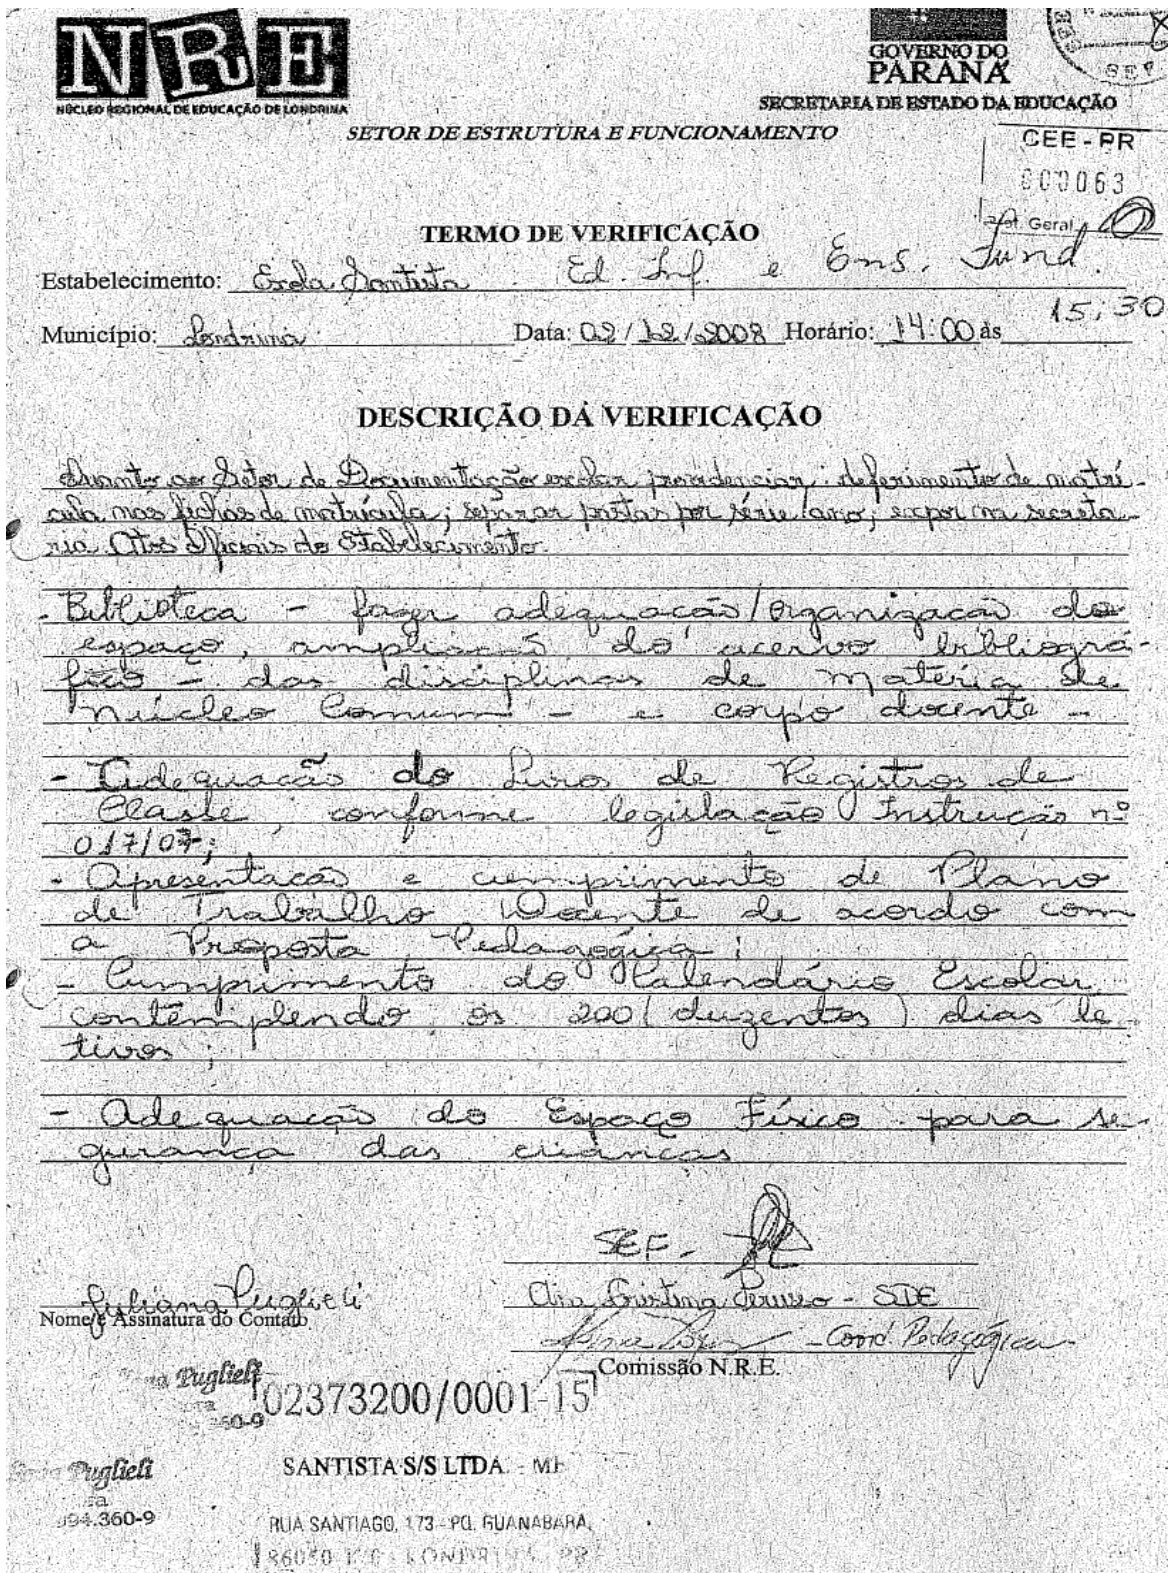 NRE
NÚCLEO REGIONAL DE EDUCAÇÃO DE LONDRINA
GOVERNO DO
PARANÁ
SECRETARIA DE ESTADO DA EDUCAÇÃO
SETOR DE ESTRUTURA E FUNCIONAMENTO
CEE - PR
000063
Geral
TERMO DE VERIFICAÇÃO
Estabelecimento: Escola Santista Ed. Inf. e Ens. Fund.
Município: Londrina Data: 02/12/2008 Horário: 14:00 às 15:30
DESCRIÇÃO DA VERIFICAÇÃO
Quanto ao Setor de Documentação escolar providenciar: deferimento de matrí-
cula nas fichas de matrícula; separar pastas por série/ano; expor na secreta-
ria Atos Oficiais do Estabelecimento.
- Biblioteca - fazer adequação/organização do
espaço, ampliação do acervo bibliográ-
fico - das disciplinas de matéria de
Núcleo Comum - e corpo docente -
- Adequação do Livro de Registros de
Classe, conforme legislação Instrução nº
017/07;
- Apresentação e cumprimento de Plano
de Trabalho Docente de acordo com
a Proposta Pedagógica;
- Cumprimento do Calendário Escolar
contemplendo os 200 (duzentos) dias le-
tivos;
- Adequação do Espaço Físico para se-
gurança das crianças
SEF.
Juliana Puglieli
Nome e Assinatura do Contato
Ana Cristina - SDE
- Coord Pedagógica
Comissão N.R.E.
Puglieli
360-9
02373200/0001-15
Puglieli
094.360-9
SANTISTA S/S LTDA. - ME
RUA SANTIAGO, 173 - PQ. GUANABARA,
LONDRINA - PR